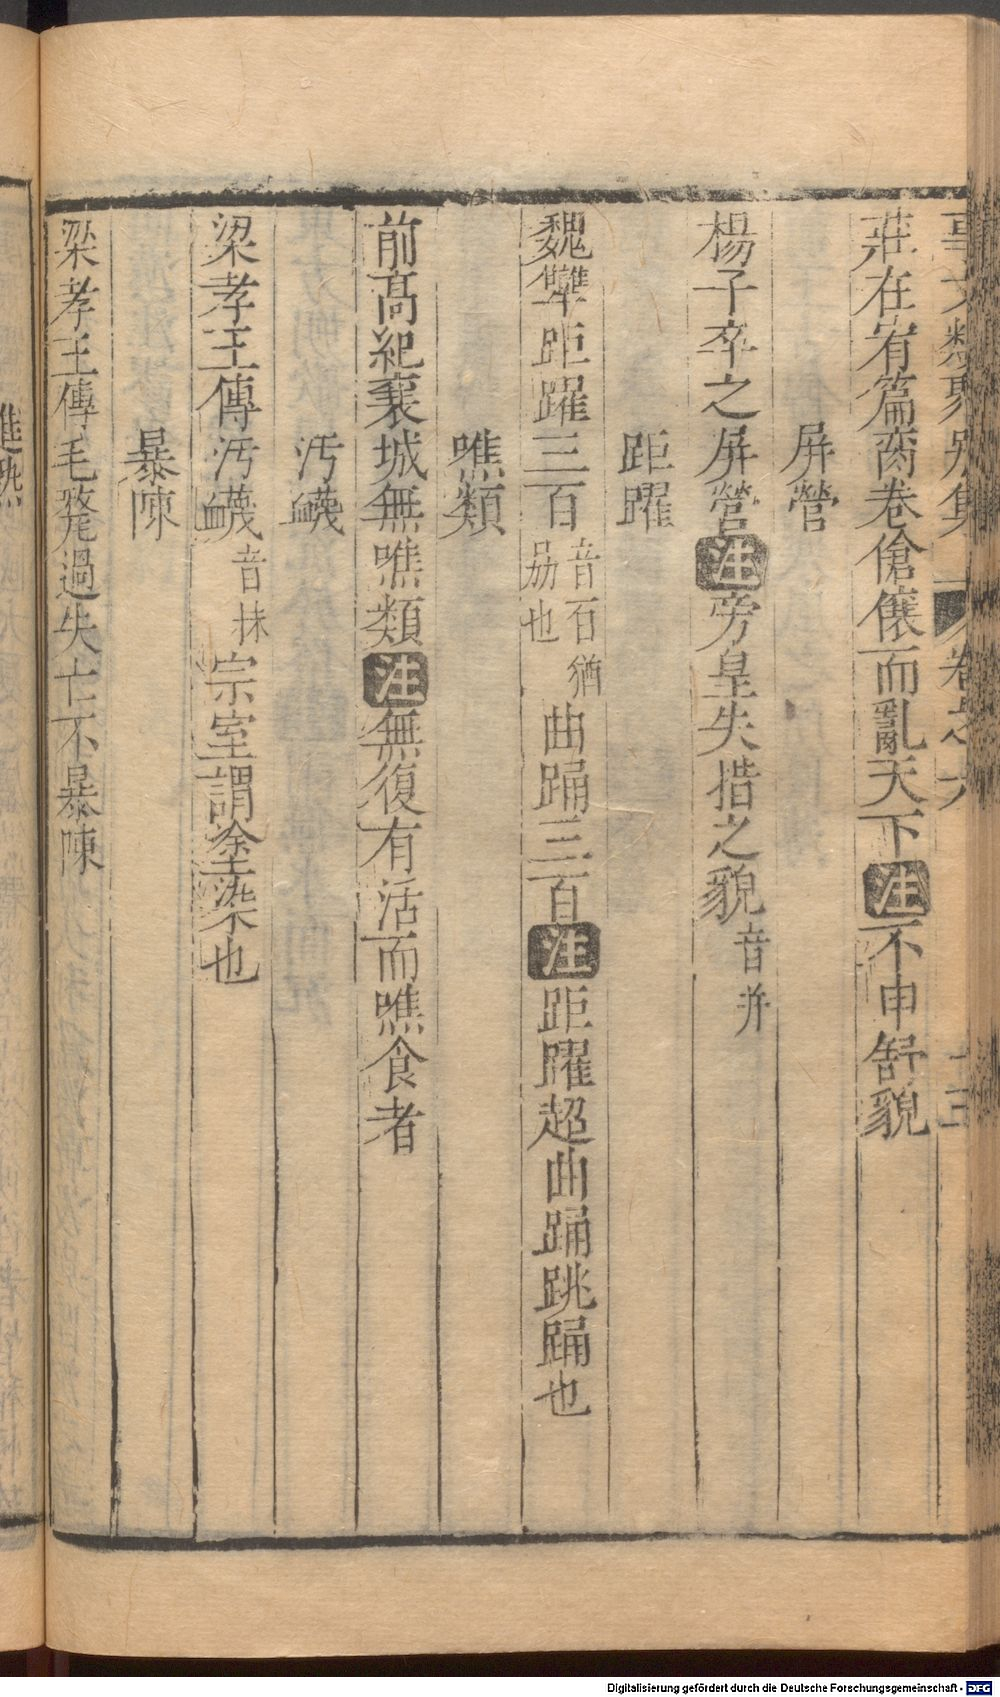 事文類聚別集 卷之六 十三
莊在宥篇臠卷傖儴而亂天下注不申舒貌
屏營
楊子卒之屏營注旁皇失措之貌音并
距躍
魏犨距躍三百音百猶勱也曲踊三百注距躍超曲踊跳踊也
噍類
前高紀襄城無噍類注無復有活而噍食者
汚衊
梁孝王傳汚衊音抹宗室謂塗染也
暴陳
梁孝王傳毛氂過失亡不暴陳
Digitalisierung gefördert durch die Deutsche Forschungsgemeinschaft - DFG